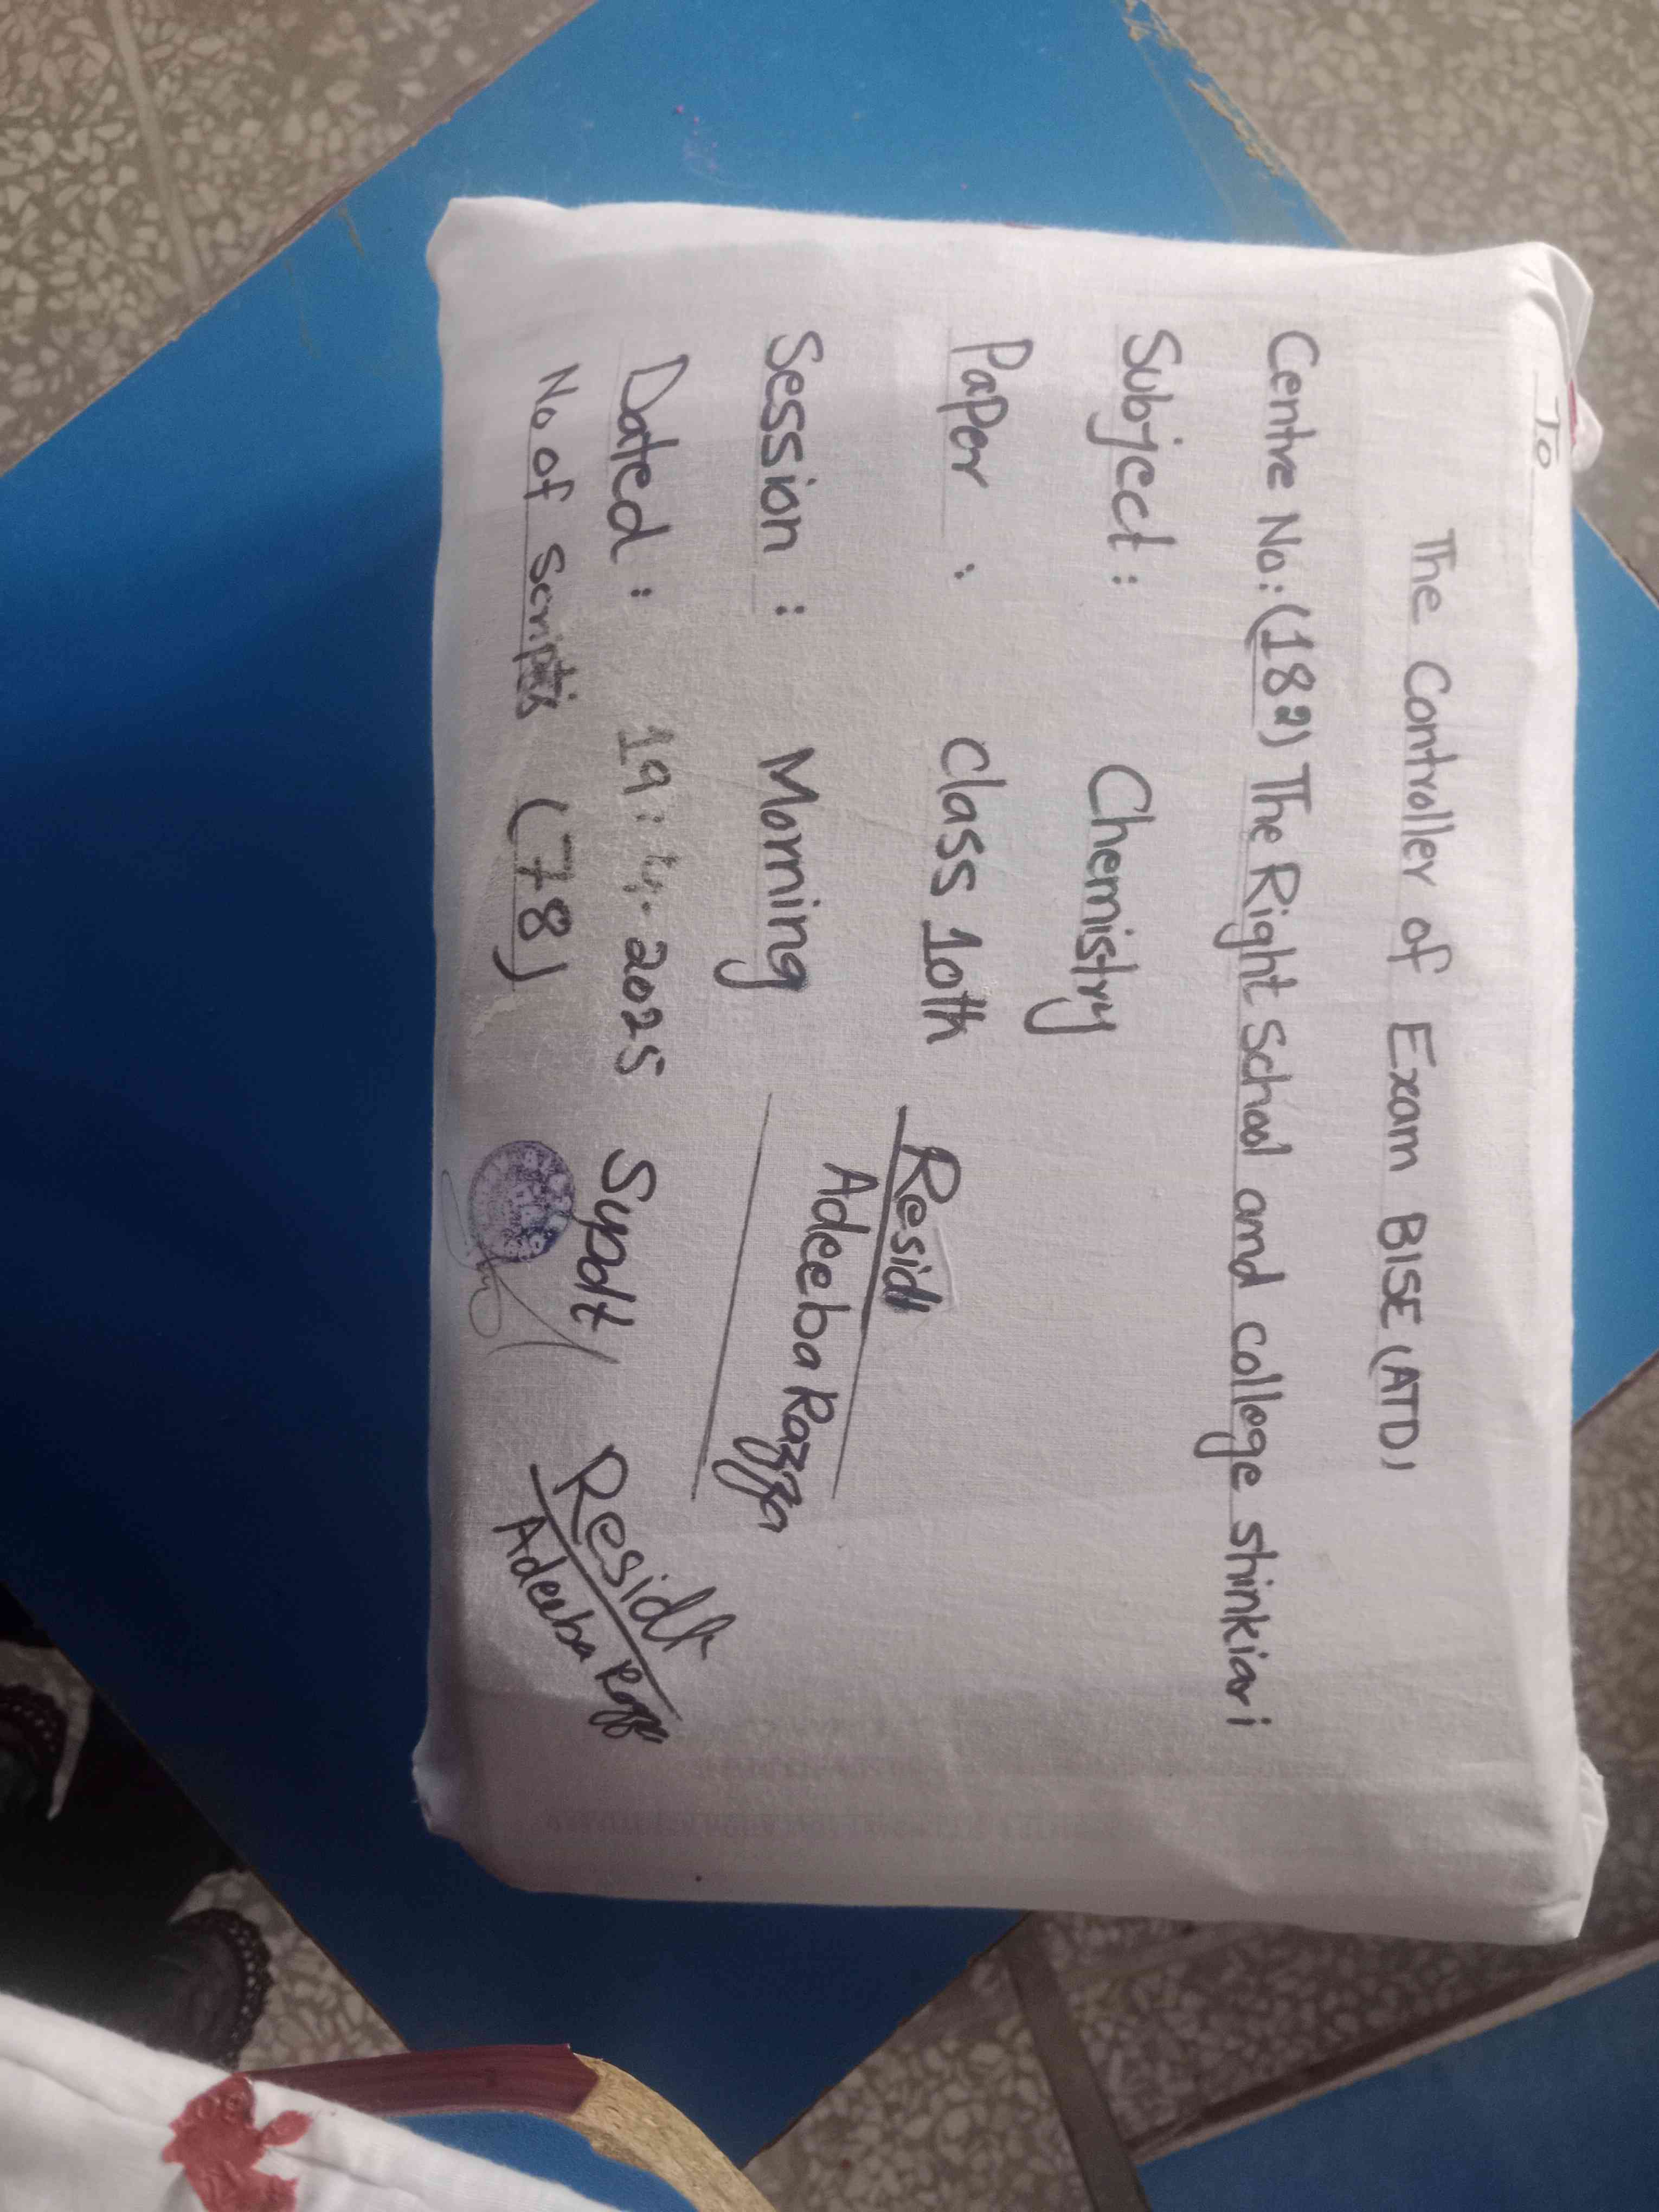 To
The Controller of Exam BISE (ATD)
Centre No: (182) The Right School and college shinkiari
Subject: Chemistry
Paper : class 10th
Session : Morning
Dated : 19:4.2025
No of Scripts (78)
Resid
Adeeba
Supdt
Residt
Adeeba